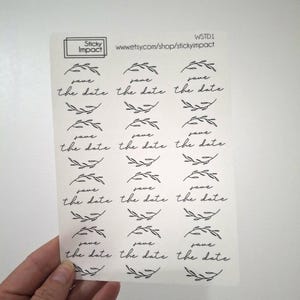 Sticky
Impact
WSTD1
www.etsy.com/shop/stickyimpact
save save save
the date the date the date
save save save
the date the date the date
save save save
the date the date the date
save save save
the date the date the date